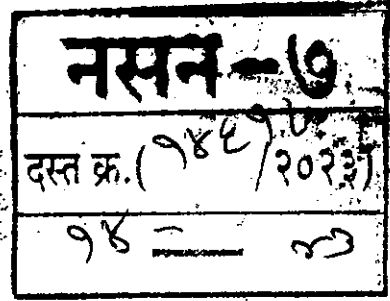 नसन-७
दस्त क्र.(१४६१७/२०२३)
१४ - २३